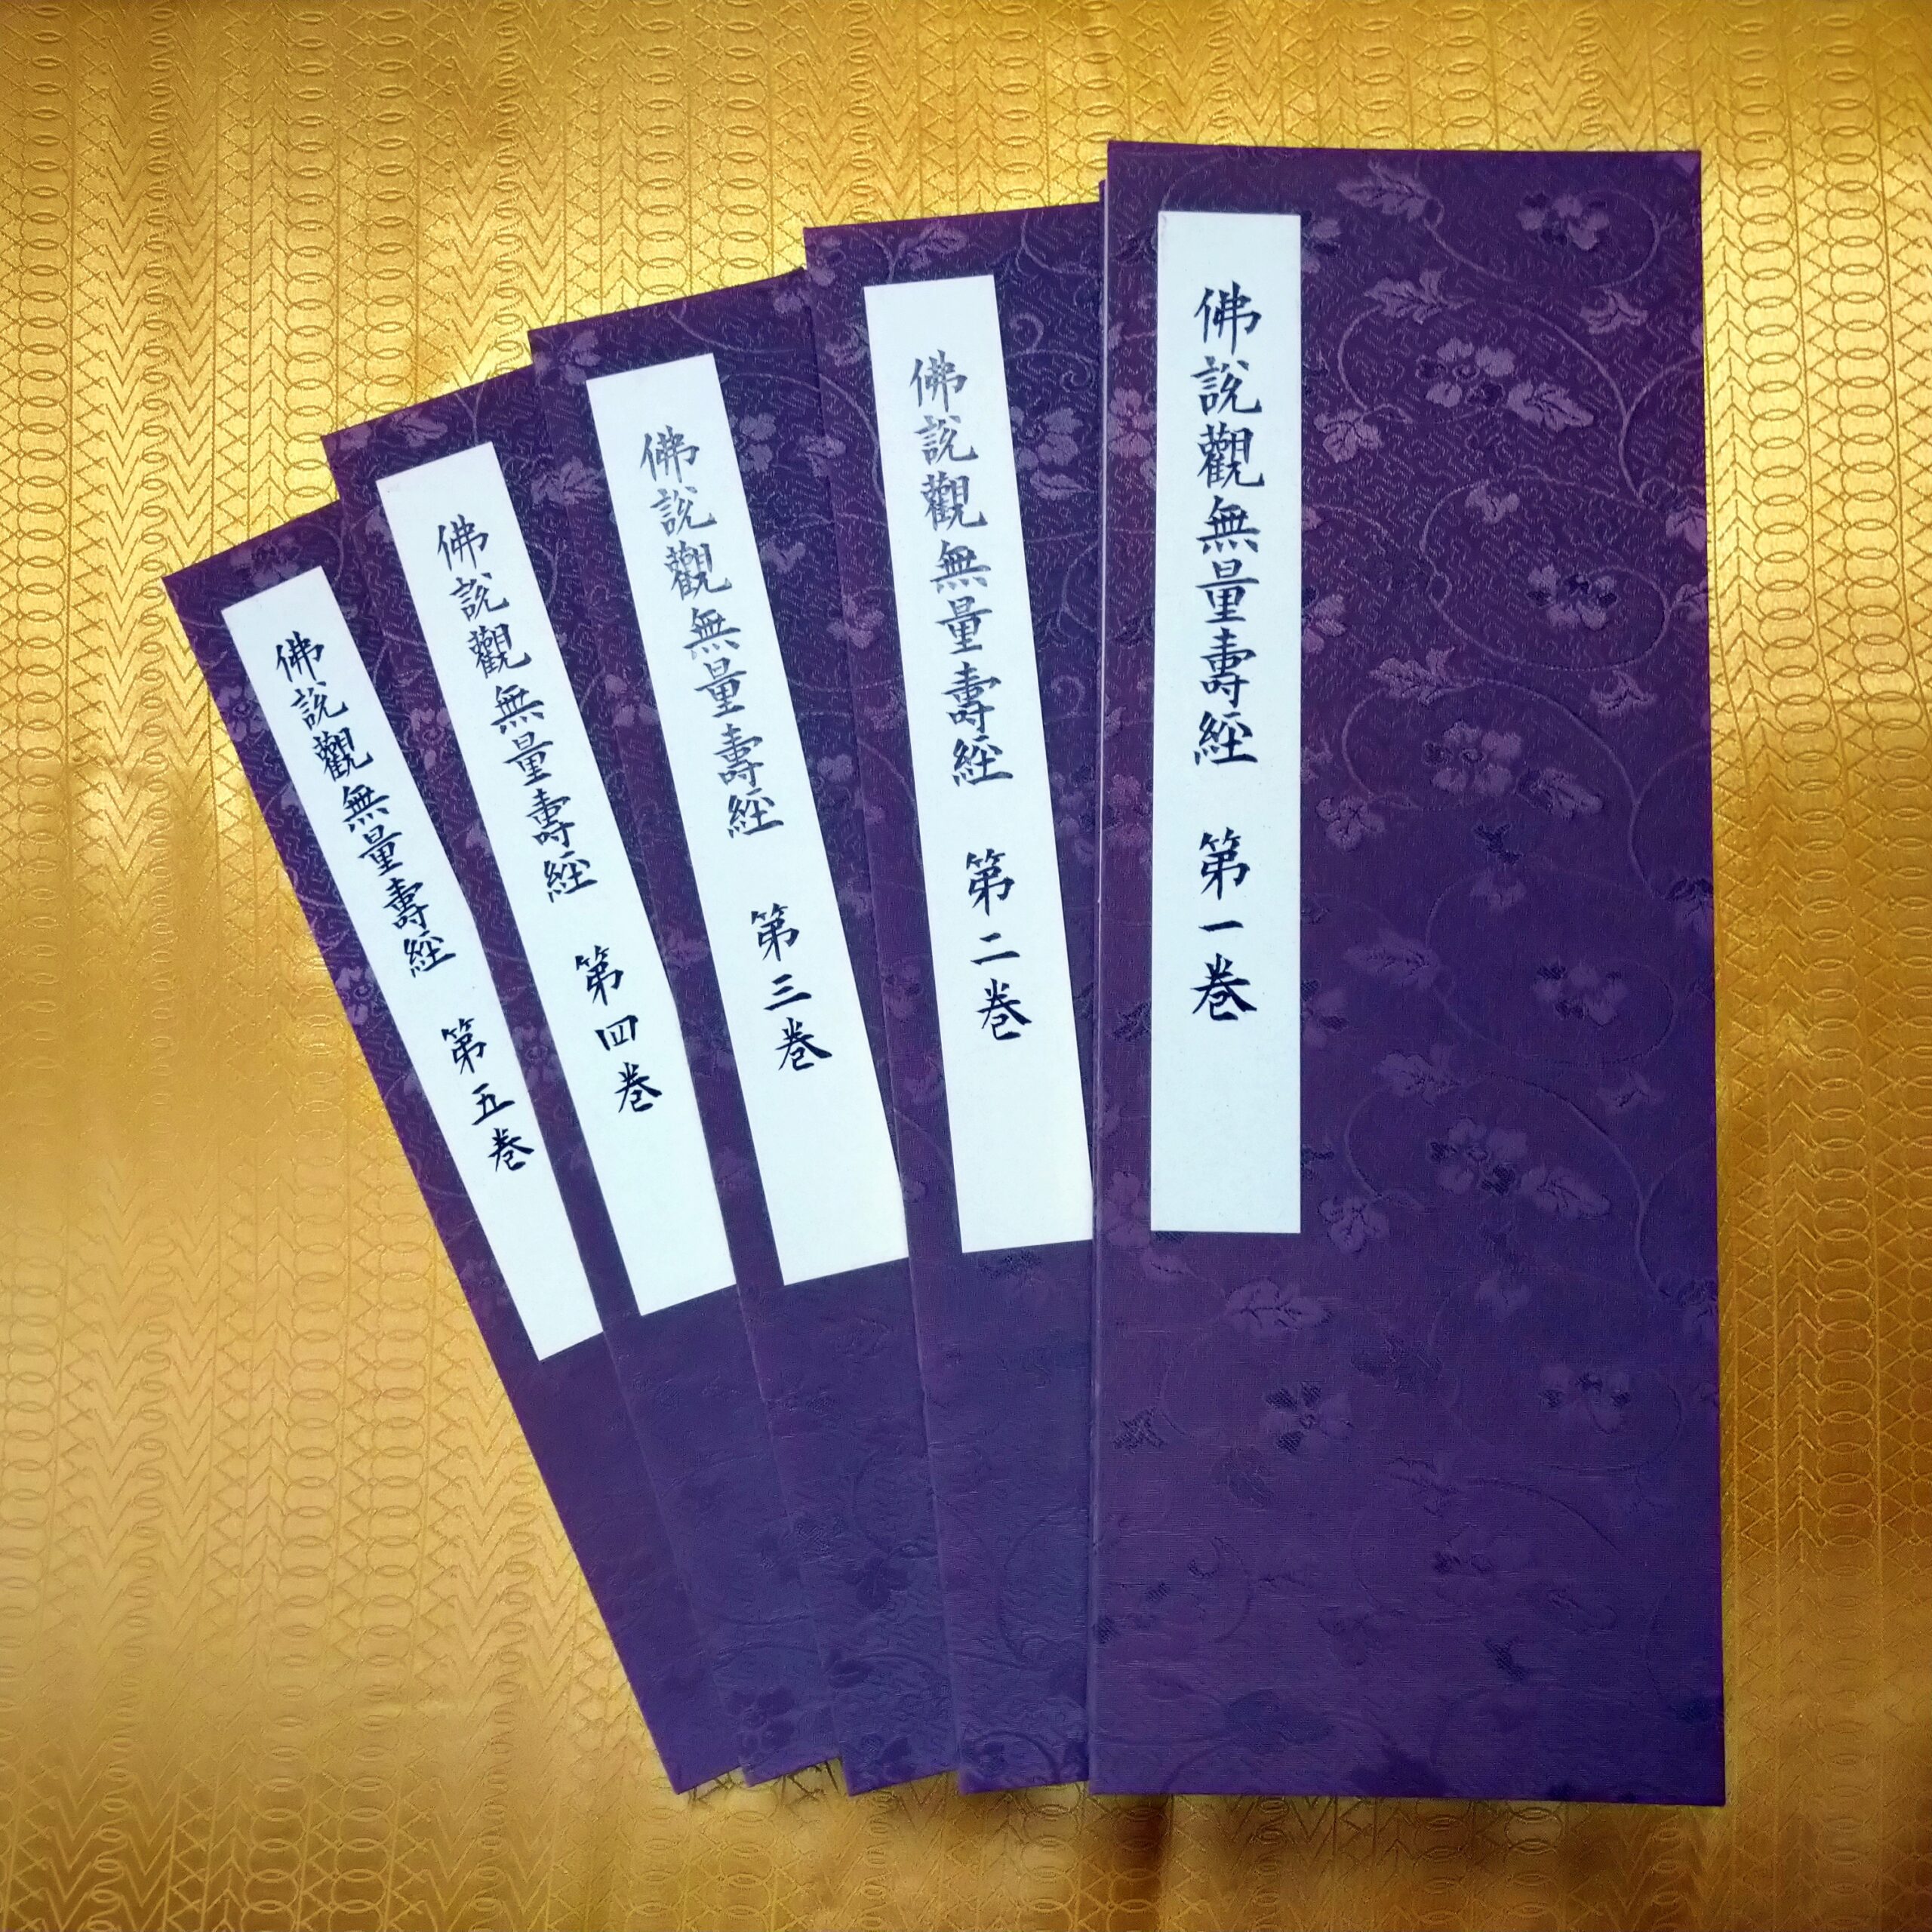 佛說觀無量壽經 第一卷
佛說觀無量壽經 第二卷
佛說觀無量壽經 第三卷
佛說觀無量壽經 第四卷
佛說觀無量壽經 第五卷